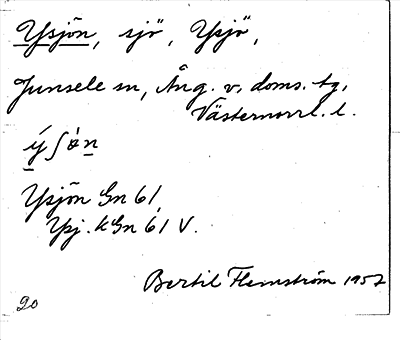 Ysjön, sjö, Ysjö,
Junsele sn, Ång. v. doms. tg,
Västernorrl. l.
ý ʃ ò n
Ysjön Gn 61
Ysj. kGn 61 V.
Bertil Flemström 1957
20